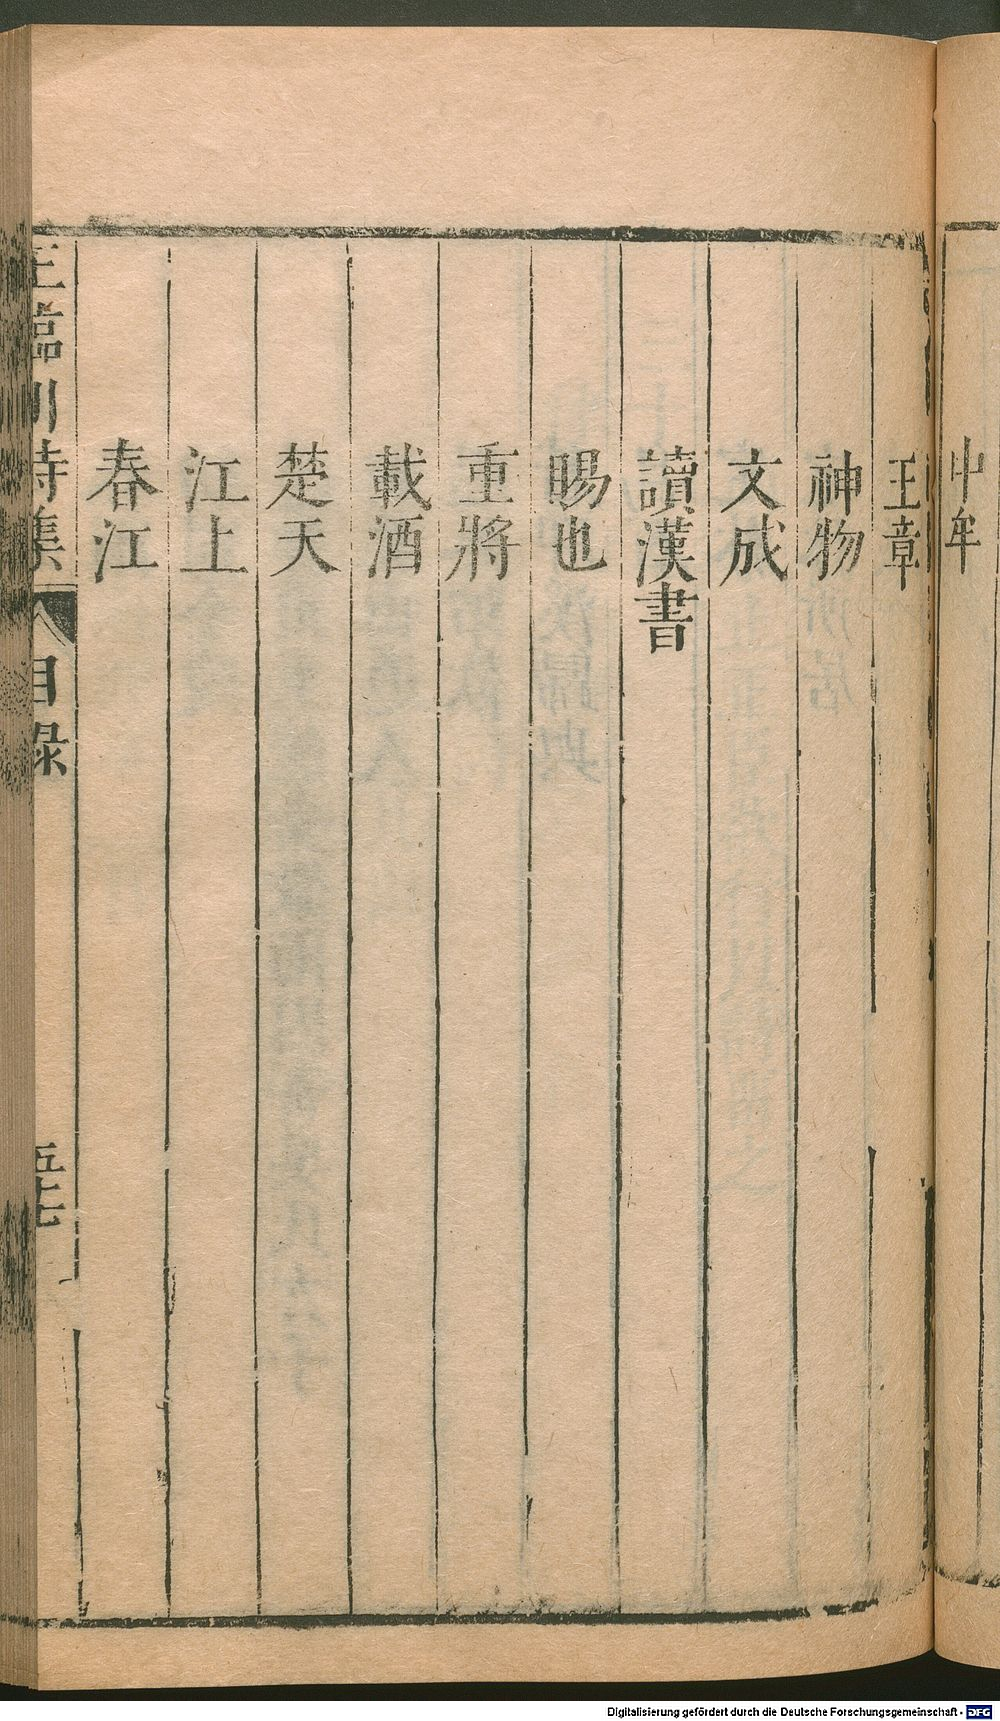 中牟
王章
神物
文成
讀漢書
賜也
重將
載酒
楚天
江上
春江
王臨川詩集 目錄 五十七
Digitalisierung gefördert durch die Deutsche Forschungsgemeinschaft - DFG